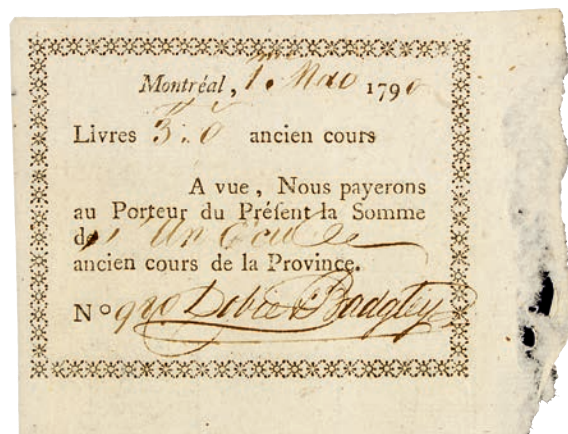 Montréal, 1. May 1790
Livres 3..0 ancien cours
A vue, Nous payerons
au Porteur du Préſent la Somme
de Un Ecu
ancien cours de la Province.
Nº 920 Dobie & Badgley